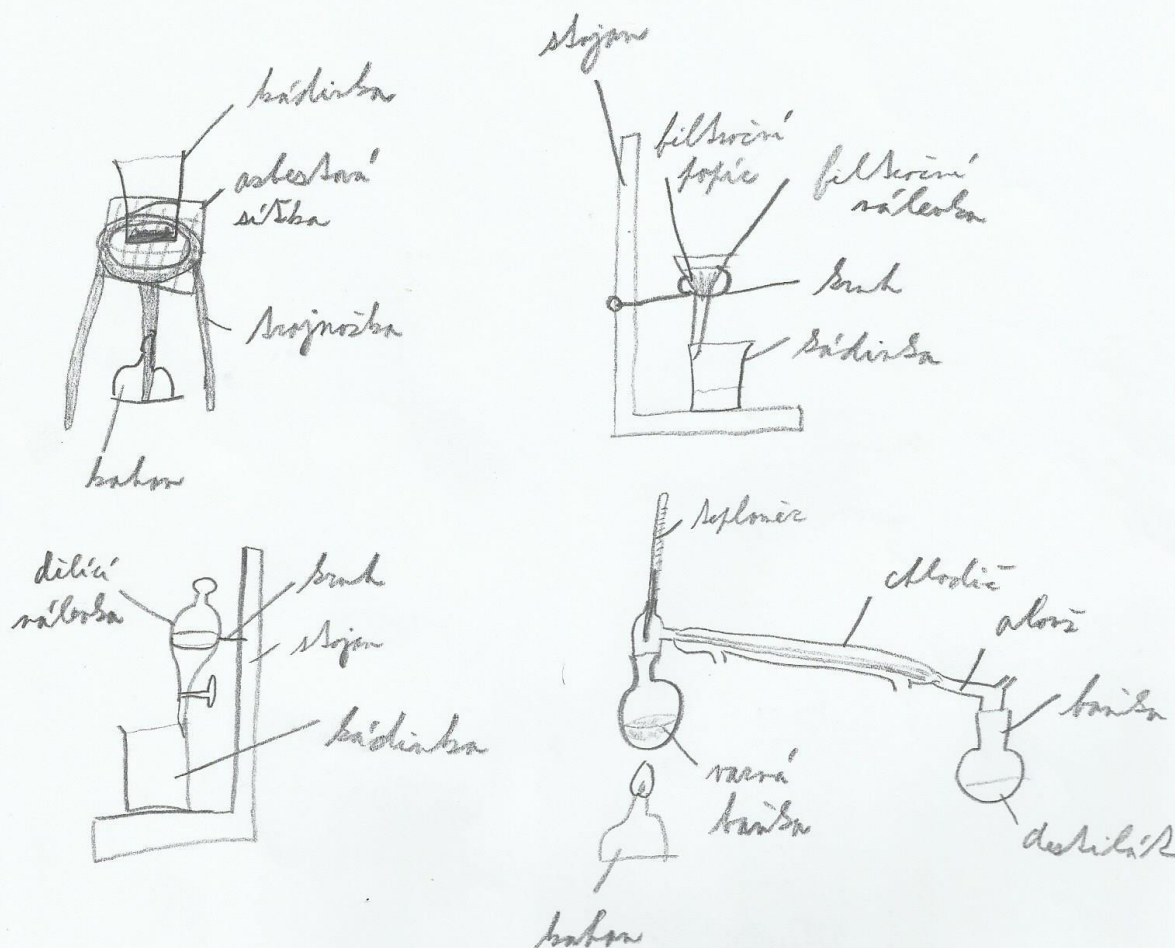 kádinka
asbestová
síťka
trojnožka
kahan
stojan
filtrační
papír
filtrační
nálevka
kruh
kádinka
dělící
nálevka
kruh
stojan
kádinka
teploměr
chladič
alonž
baňka
varná
baňka
destilát
kahan